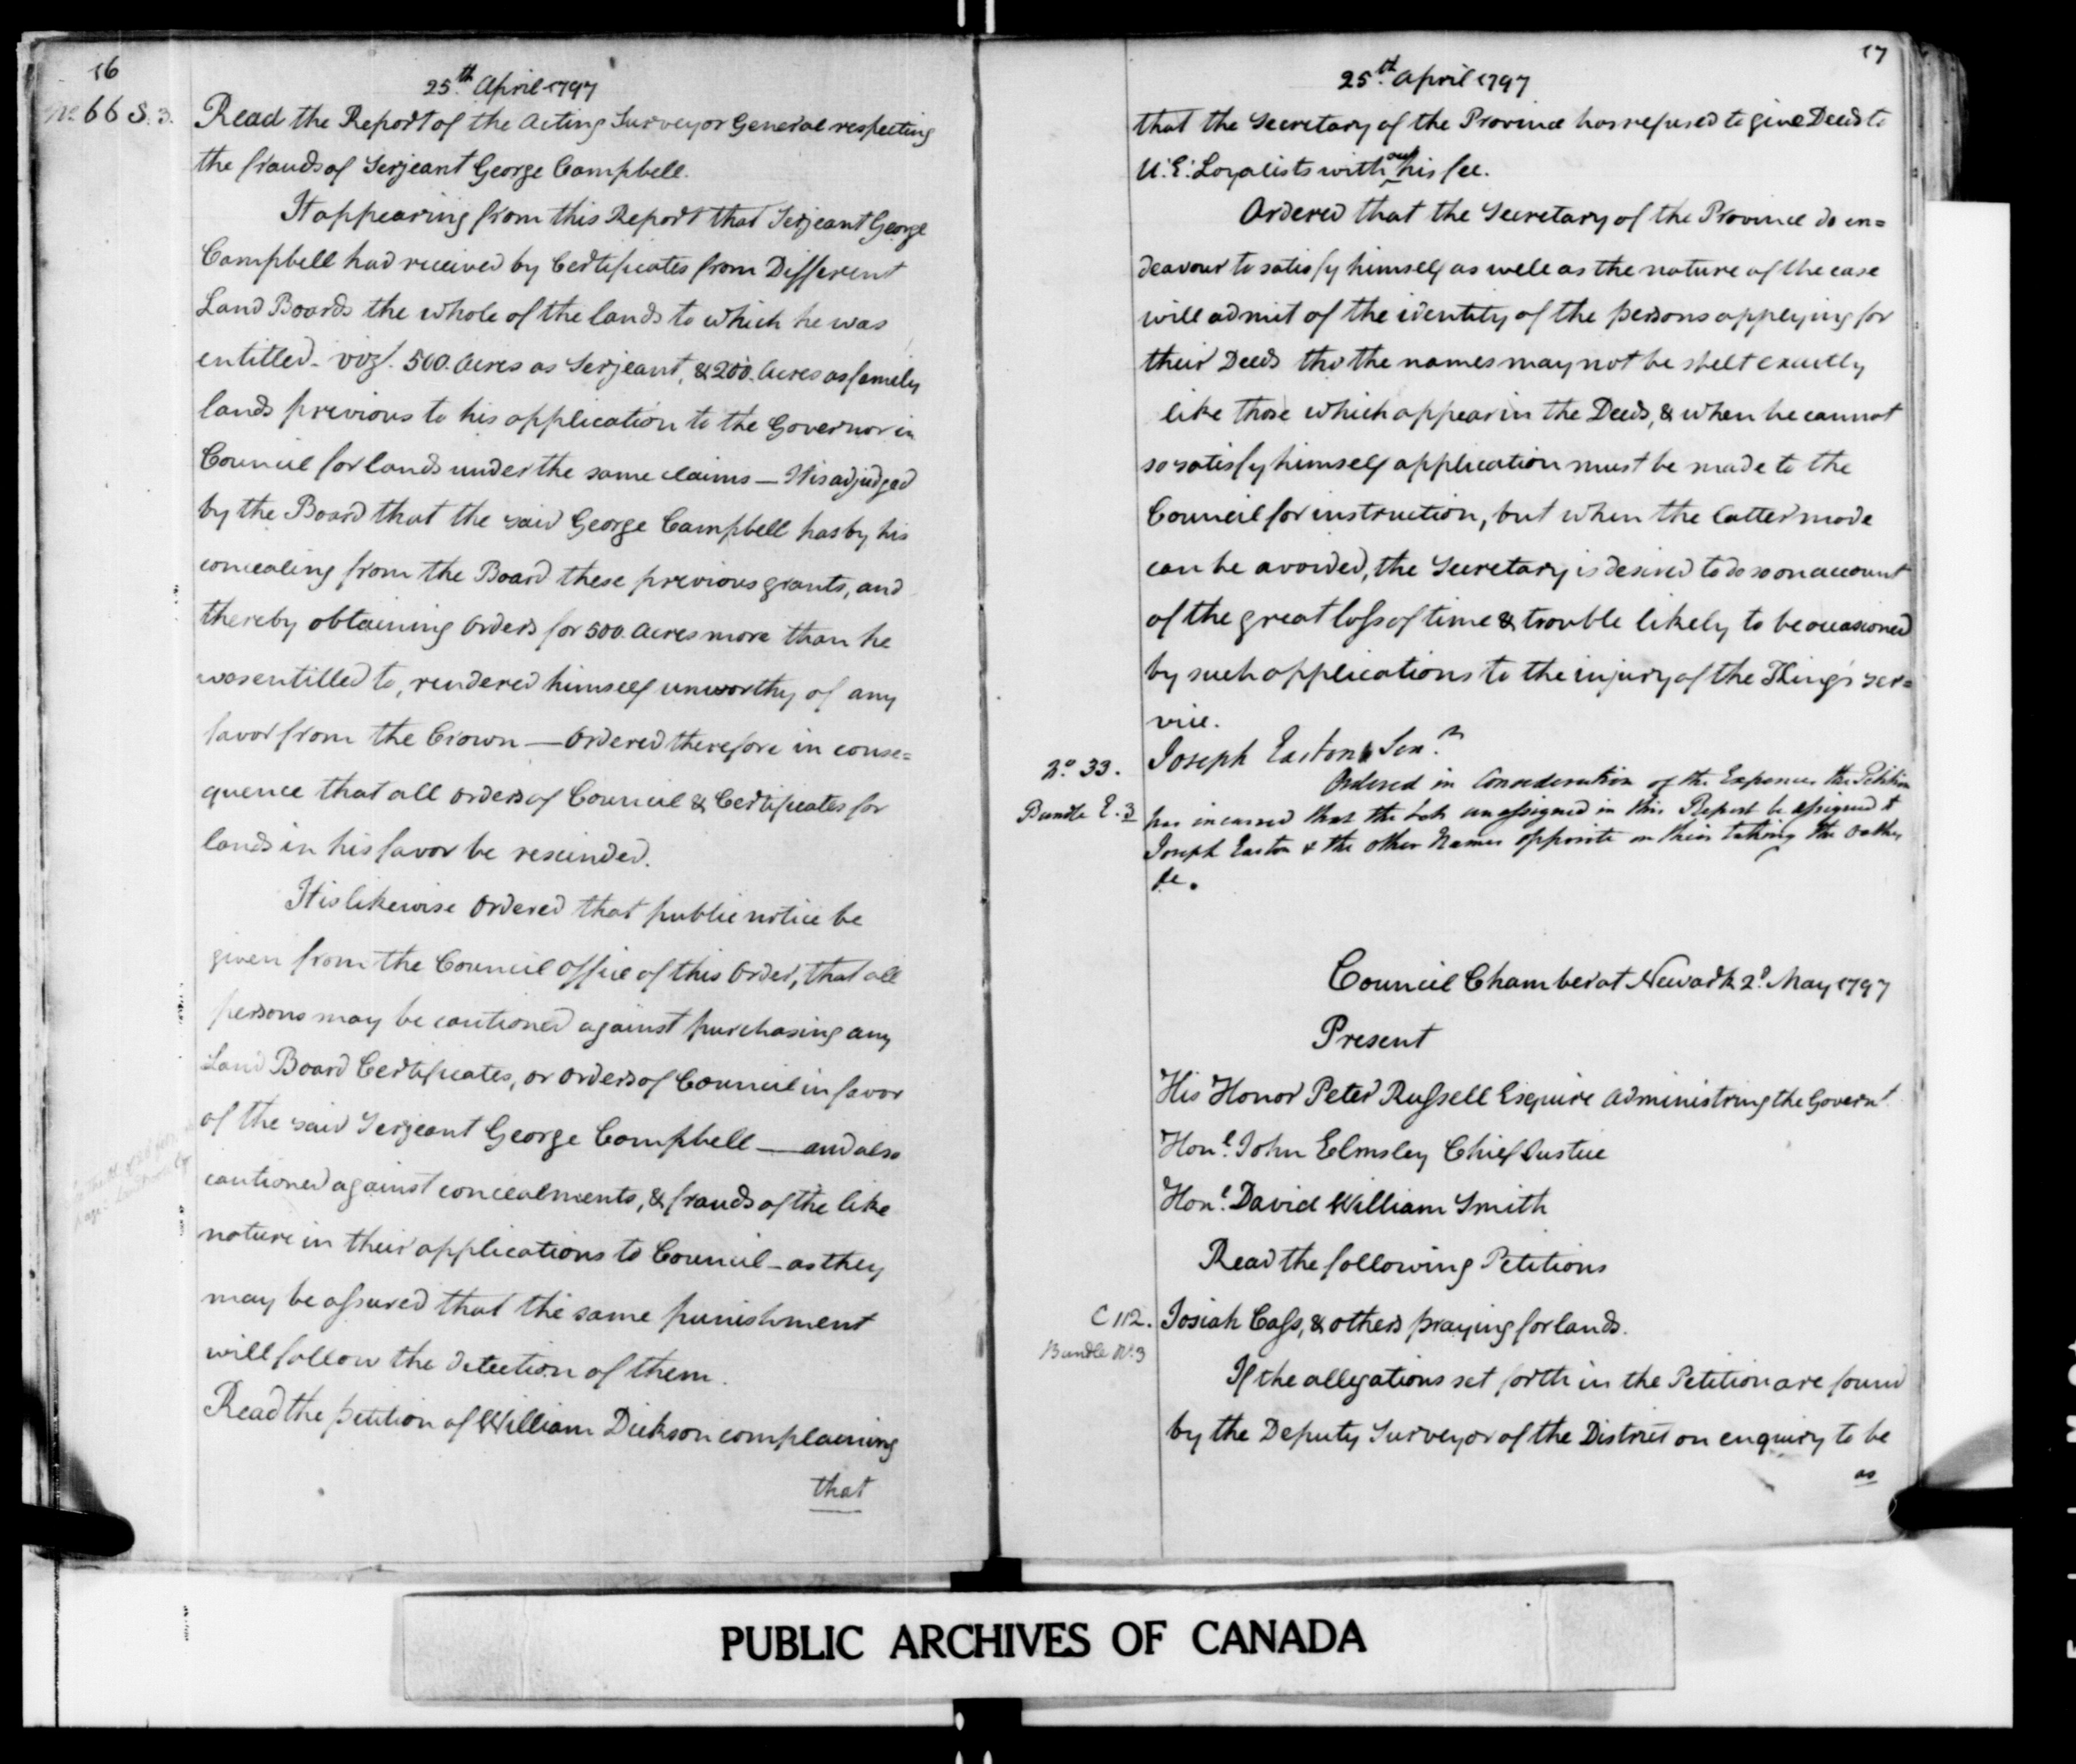 16
25.th April 1797
No. 66 S. 3.
Read the Report of the Acting Surveyor General respecting
the frauds of Serjeant George Campbell.
It appearing from this Report that Serjeant George
Campbell had received by Certificates from Different
Land Boards the whole of the lands to which he was
entitled - vizt. 500. Acres as Serjeant, & 200. Acres as family
lands previous to his application to the Governor in
Council for lands under the same claims — It is adjudged
by the Board that the said George Campbell has by his
concealing from the Board these previous grants, and
thereby obtaining Orders for 500 Acres more than he
was entitled to, rendered himself unworthy of any
favor from the Crown — Ordered therefore in conse=
quence that all orders of Council & Certificates for
lands in his favor be rescinded.
It is likewise Ordered that public notice be
given from the Council Office of this Order, that all
persons may be cautioned against purchasing any
Land Board Certificates, or orders of Council in favor
of the said Serjeant George Campbell — and also
cautioned against concealments, & frauds of the like
nature in their applications to Council - as they
may be assured that the same punishment
will follow the detection of them.
Read the petition of William Dickson complaining
that
17
25.th April 1797
that the Secretary of the Province has refused to give Deeds to
U.E. Loyalists without his fee.
Ordered that the Secretary of the Province do en=
deavour to satisfy himself as well as the nature of the case
will admit of the identity of the persons applying for
their Deeds tho the names may not be spelt exactly
like those which appear in the Deeds, & when he cannot
so satisfy himself application must be made to the
Council for instruction, but when the latter mode
can be avoided, the Secretary is desired to do so on account
of the great loss of time & trouble likely to be occasioned
by such applications to the injury of the King's ser=
vice.
No. 33.
Bundle E. 3
Joseph Easton Senr.
Ordered in Consideration of the Expences the Petition
has incurred that the Lots unassigned in this Report be assigned to
Joseph Easton & the other Names opposite on their taking the oaths
&c.
Council Chamber at Newark 2d. May 1797
Present
His Honor Peter Russell Esquire Administring the Governt.
Honl. John Elmsley Chief Justice
Honl. David William Smith
Read the following Petitions
C 112.
Bundle No. 3
Josiah Cass, & others praying for lands.
If the allegations set forth in the Petition are found
by the Deputy Surveyor of the District on enquiry to be
as
PUBLIC ARCHIVES OF CANADA